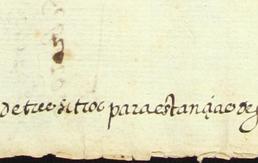 de tres sitios para estançia de g